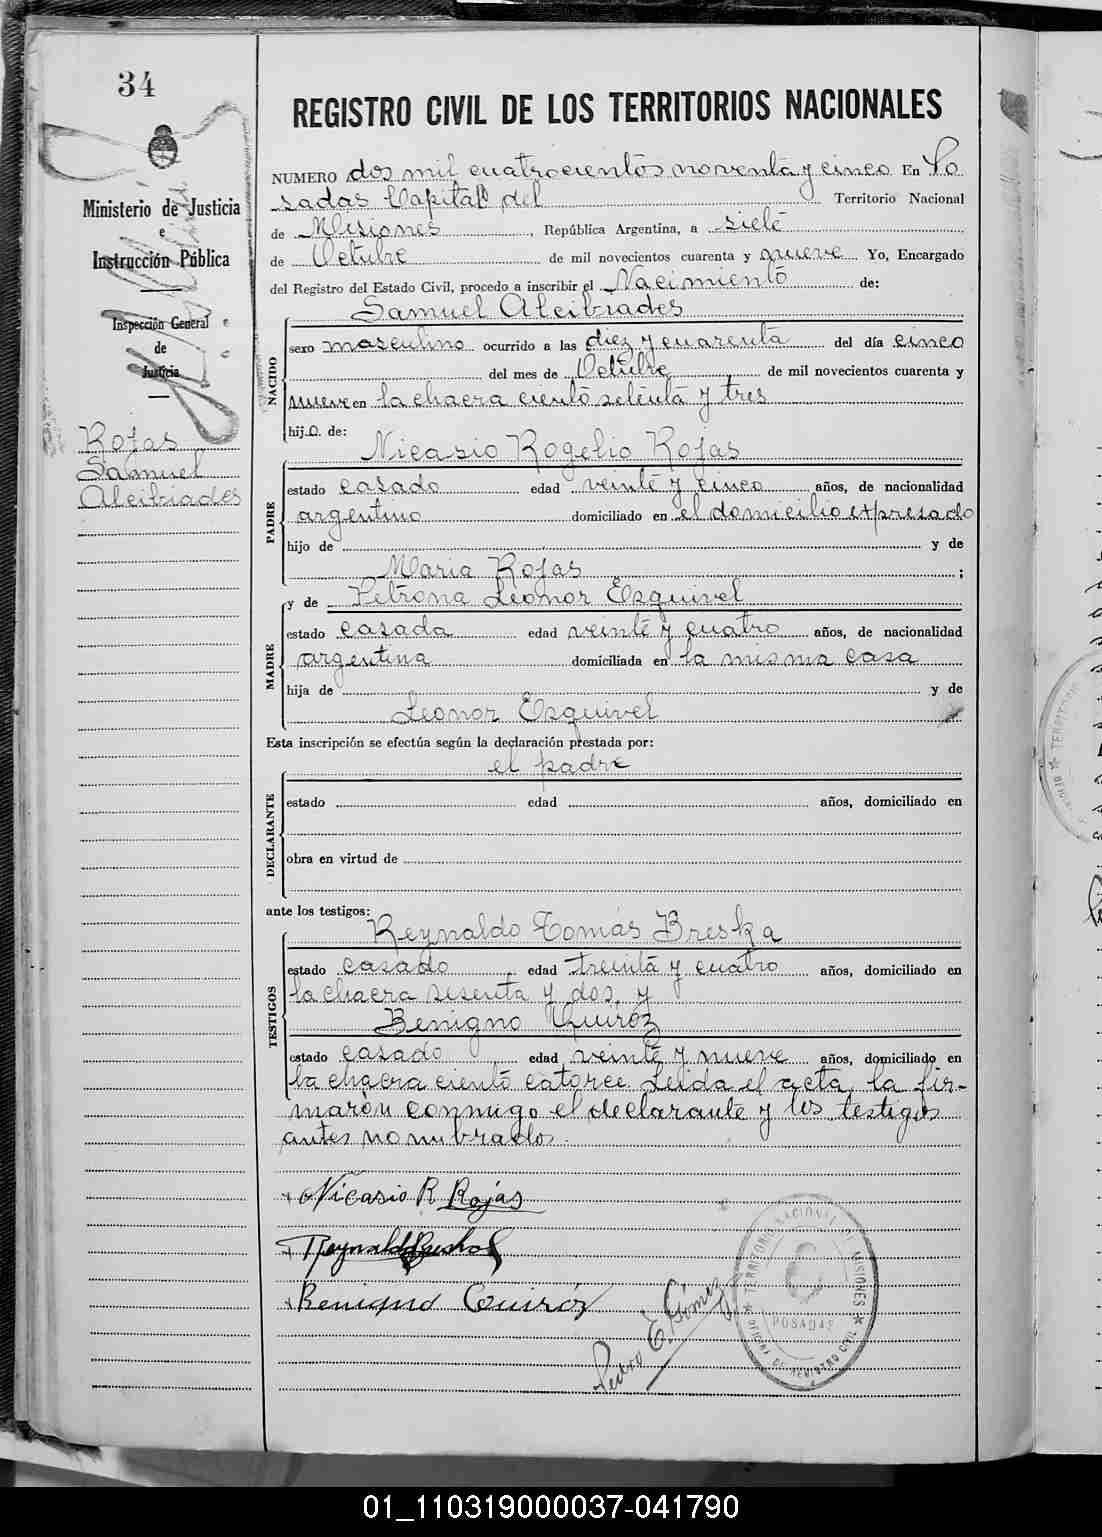 34
Ministerio de Justicia
e
Instrucción Pública
Inspección General
de
Justicia
Rojas
Samuel
Alcibiades
REGISTRO CIVIL DE LOS TERRITORIOS NACIONALES
NUMERO dos mil cuatrocientos noventa y cinco En Po
sadas Capital del Territorio Nacional
de Misiones, República Argentina, a siete
de Octubre de mil novecientos cuarenta y nueve Yo, Encargado
del Registro del Estado Civil, procedo a inscribir el Nacimiento de:
Samuel Alcibiades
NACIDO
sexo masculino ocurrido a las diez y cuarenta del día cinco
del mes de Octubre de mil novecientos cuarenta y
nueve en la chacra ciento setenta y tres
hijo de:
Nicasio Rogelio Rojas
PADRE
estado casado edad veinte y cinco años, de nacionalidad
argentino domiciliado en el domicilio expresado
hijo de y de
Maria Rojas ;
y de Petrona Leonor Esquivel
MADRE
estado casada edad veinte y cuatro años, de nacionalidad
argentina domiciliada en la misma casa
hija de y de
Leonor Esquivel
Esta inscripción se efectúa según la declaración prestada por:
el padre
DECLARANTE
estado edad años, domiciliado en
obra en virtud de
ante los testigos:
Reynaldo Tomás Breska
TESTIGOS
estado casado edad treinta y cuatro años, domiciliado en
la chacra sesenta y dos, y
Benigno Quiróz
estado casado edad veinte y nueve años, domiciliado en
la chacra ciento catorce. Leida el acta, la fir-
marón conmigo el declarante y los testigos
antes nombrados.
Nicasio R Rojas
Benigno Quiróz
Pedro E. Gómez
TERRITORIO NACIONAL DE MISIONES
POSADAS
OFICINA DE REGISTRO CIVIL
01_110319000037-041790